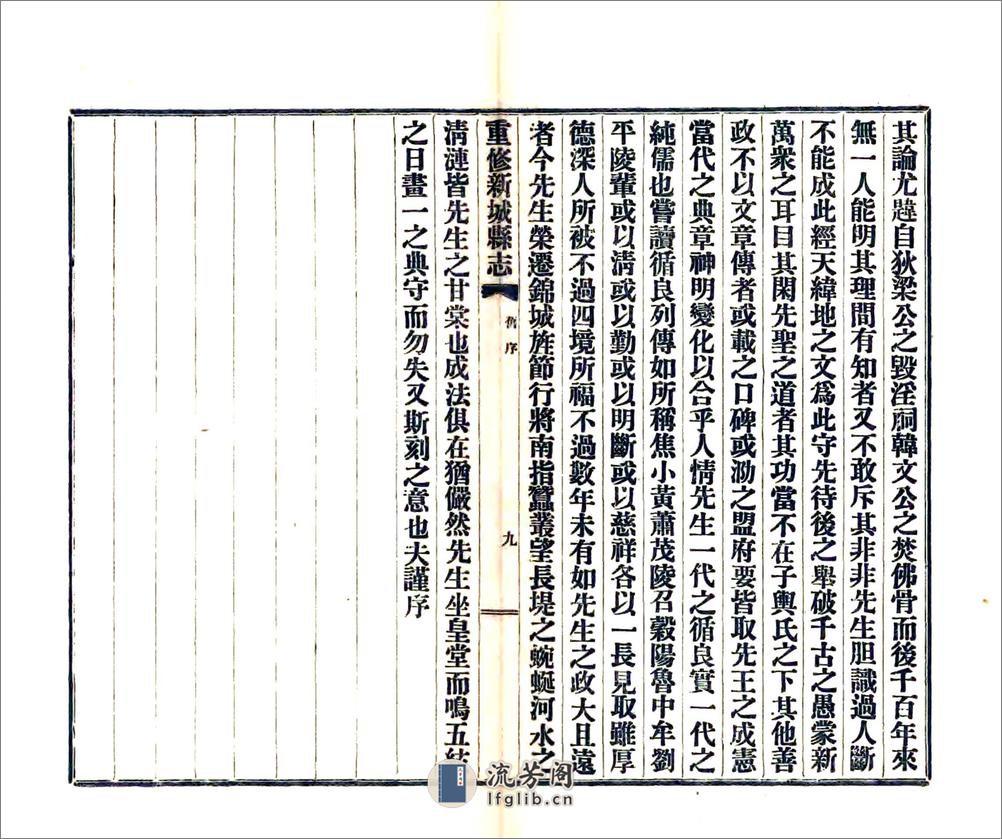 其論尤韙自狄梁公之毀淫祠韓文公之焚佛骨而後千百年來
無一人能明其理間有知者又不敢斥其非非先生胆識過人斷
不能成此經天緯地之文爲此守先待後之舉破千古之愚蒙新
萬衆之耳目其閑先聖之道者其功當不在子輿氏之下其他善
政不以文章傳者或載之口碑或泐之盟府要皆取先王之成憲
當代之典章神明變化以合乎人情先生一代之循良實一代之
純儒也嘗讀循良列傳如所稱焦小黃蕭茂陵召穀陽魯中牟劉
平陵輩或以淸或以勤或以明斷或以慈祥各以一長見取雖厚
德深人所被不過四境所福不過數年未有如先生之政大且遠
者今先生榮遷錦城旌節行將南指蠶叢望長堤之蜿蜒河水之
重修新城縣志
舊序
九
淸漣皆先生之甘棠也成法俱在猶儼然先生坐皇堂而鳴五絃
之日畫一之典守而勿失又斯刻之意也夫謹序
流芳阁
lfglib.cn